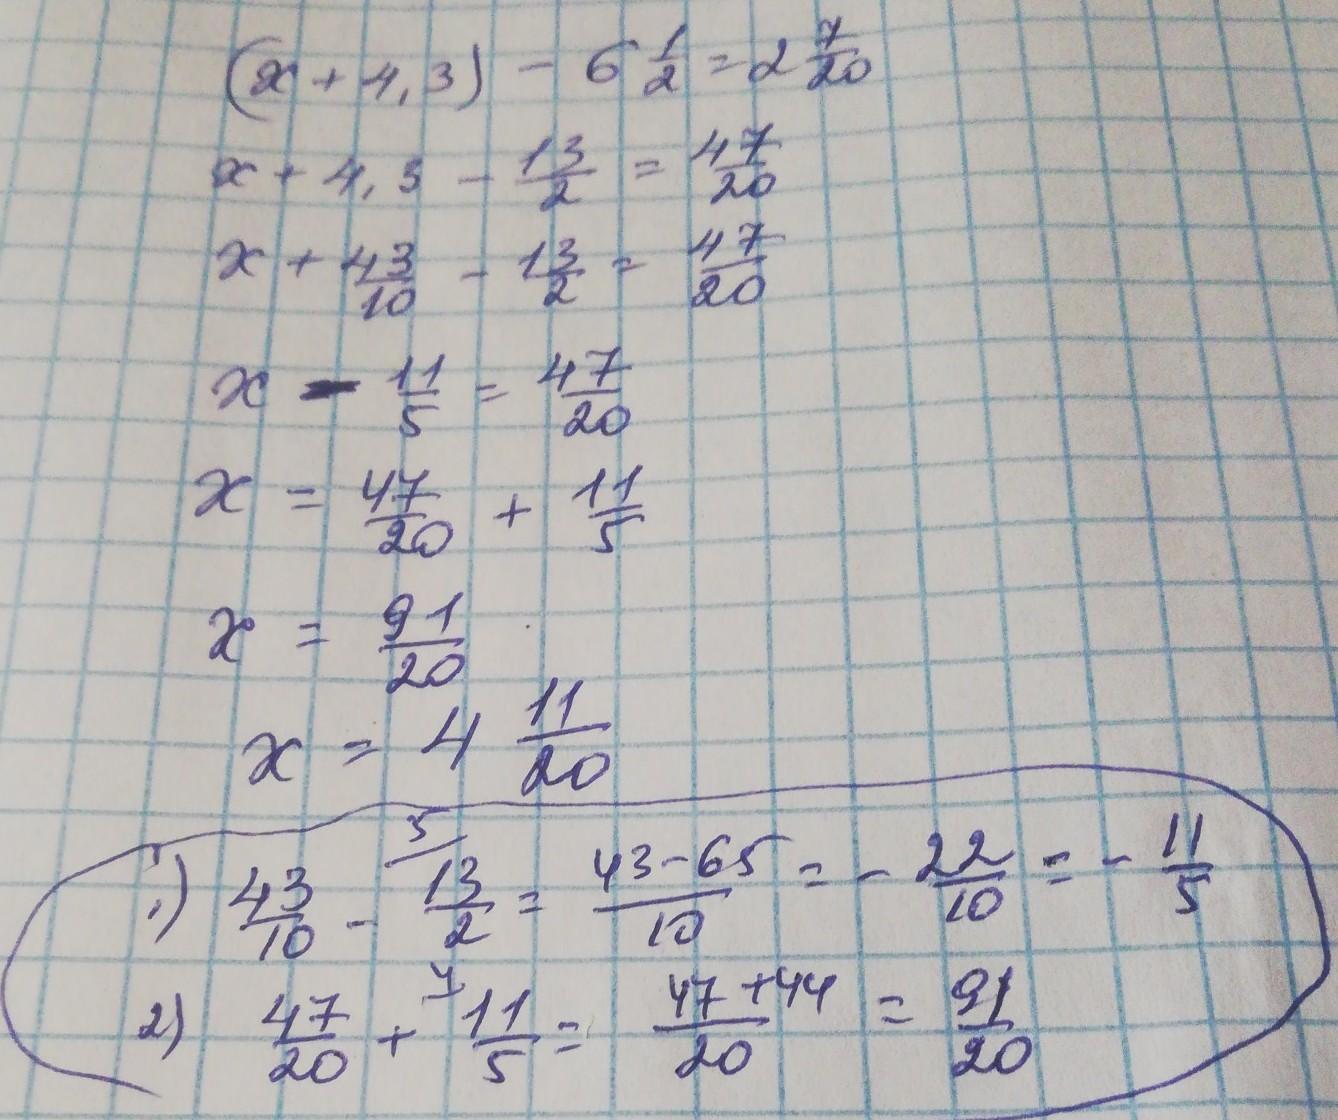 (x + 4,3) - 6 1/2 = 2 7/20
x + 4,3 - 13/2 = 47/20
x + 43/10 - 13/2 = 47/20
x - 11/5 = 47/20
x = 47/20 + 11/5
x = 91/20
x = 4 11/20
1) 43/10 - 5/ 13/2 = 43-65/10 = - 22/10 = - 11/5
2) 47/20 + 4/ 11/5 = 47+44/20 = 91/20